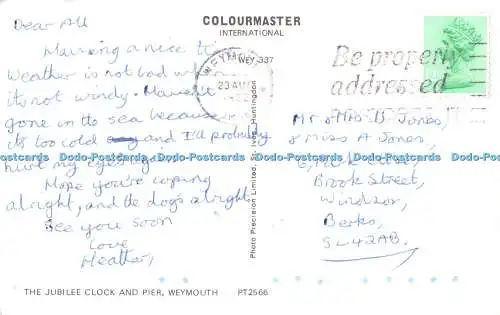 Dear All
COLOURMASTER
INTERNATIONAL
Having a nice ti
Weather is not bad when
its not windy. Haven't
gone in the sea because
its too cold and I'll probably
hurt my eyes
Hope you're coping
alright, and the dog's alright.
See you soon
Love
Heather,
WEYMOU
WEY 337
23 AU
Be properly
addressed
Mr & Mrs B Jones,
& Miss A Jones,
Brook Street,
Windsor,
Berks,
SL4 2AB.
Photo Precision Limited, Huntingdon
Dodo-Postcards Dodo-Postcards Dodo-Postcards Dodo-Postcards Dodo-Postcards Dodo-Postcards
THE JUBILEE CLOCK AND PIER, WEYMOUTH PT2566